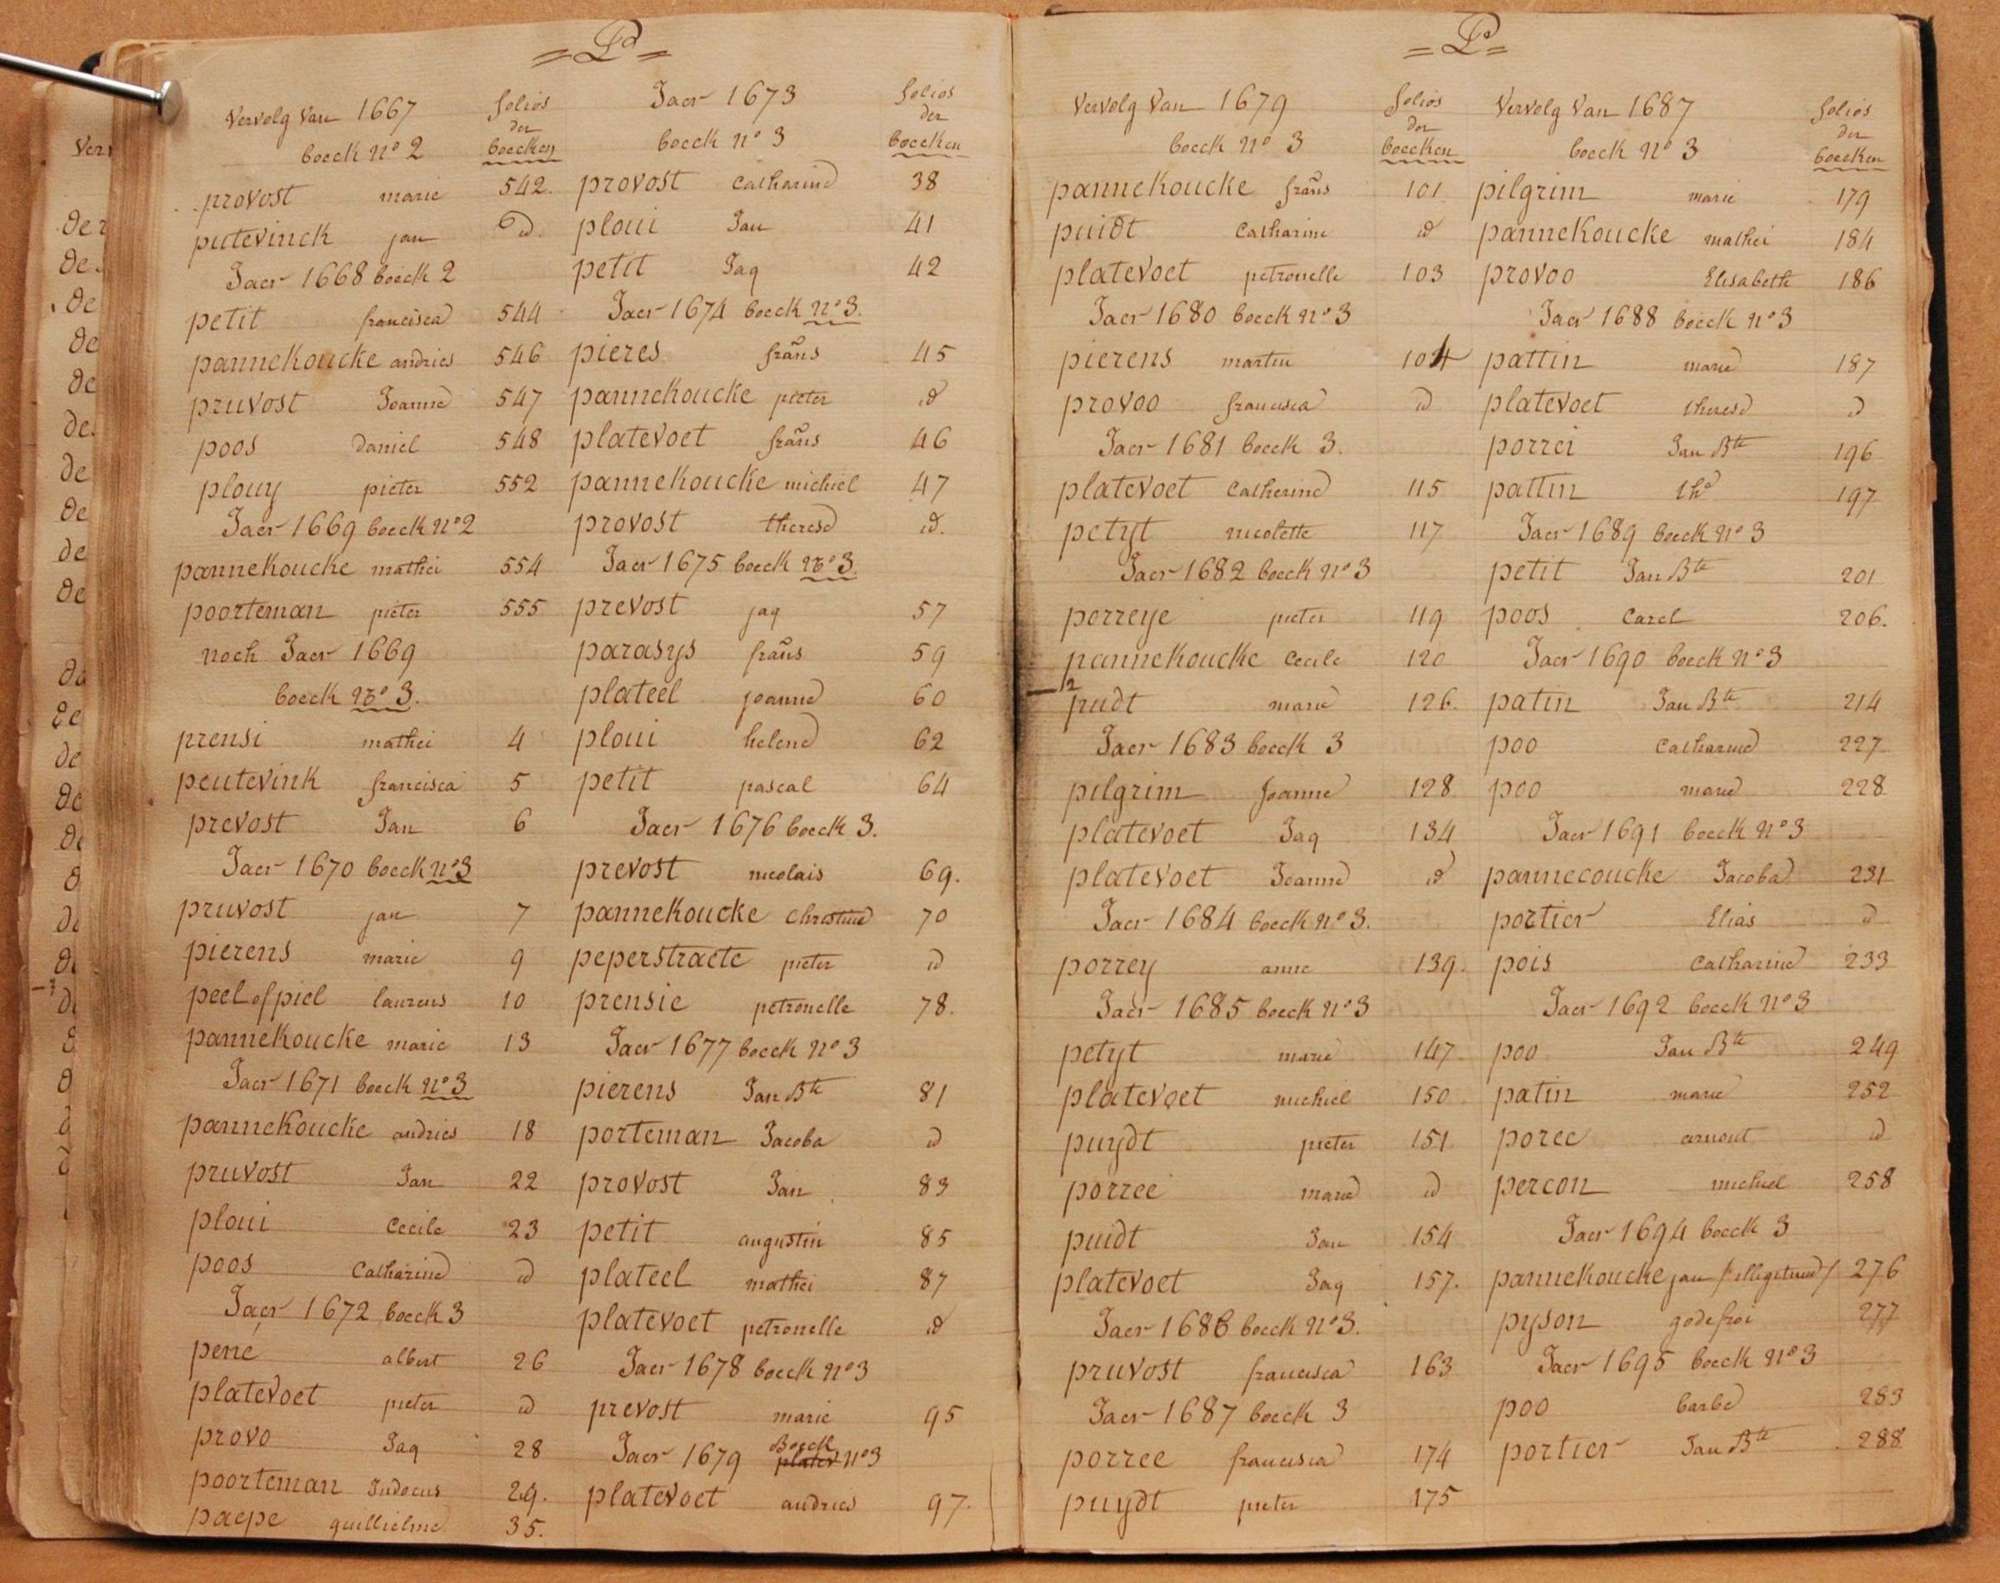 = P =
Vervolg Van 1667
boeck N° 2
folios
der
boecken
provost marie 542.
putevinck jan id
Jaer 1668 boeck 2
petit francisca 544
pannekoucke andries 546
pruvost Joanne 547
poos daniel 548
plouy pieter 552
Jaer 1669 boeck N° 2
pannekoucke mathei 554
poorteman pieter 555
noch Jaer 1669
boeck N° 3.
prensi mathei 4
peutevink francisca 5
prevost Jan 6
Jaer 1670 boeck N° 3
pruvost jan 7
pierens marie 9
peel of piel laurens 10
pannekoucke marie 13
Jaer 1671 boeck N° 3
pannekoucke andries 18
pruvost Jan 22
ploui Cecile 23
poos Catharine id
Jaer 1672 boeck 3
pene albert 26
platevoet pieter id
provo Jaq 28
poorteman Judocus 29.
paepe guillielme 35.
Jaer 1673
boeck N° 3
folios
der
boecken
provost Catharine 38
ploui Jan 41
petit Jaq 42
Jaer 1674 boeck N° 3.
pieres frans 45
pannekoucke pieter id
platevoet frans 46
pannekoucke michiel 47
provost therese id.
Jaer 1675 boeck N° 3
prevost jaq 57
parasys frans 59
plateel joanne 60
ploui helene 62
petit pascal 64
Jaer 1676 boeck 3.
prevost nicolais 69.
pannekoucke Christine 70
peperstraete pieter id
prensie petronelle 78.
Jaer 1677 boeck N° 3
pierens Jan Bte 81
porteman Jacoba id
provost Jan 83
petit augustin 85
plateel mathei 87
platevoet petronelle id
Jaer 1678 boeck N° 3
prevost marie 95
Jaer 1679 Boeck N° 3
platevoet andries 97.
= P =
Vervolg Van 1679
boeck N° 3
folios
der
boecken
pannekoucke frans 101
puidt Catharine id
platevoet petronelle 103
Jaer 1680 boeck N° 3
pierens martin 104
provoo francisca id
Jaer 1681 boeck 3.
platevoet Catherine 115
petyt nicolette 117
Jaer 1682 boeck N° 3
porreye pieter 119
pannekoucke Cecile 120
pudt marie 126.
Jaer 1683 boeck 3
pilgrim Joanne 128
platevoet Jaq 134
platevoet Joanne id
Jaer 1684 boeck N° 3.
porrey anne 139.
Jaer 1685 boeck N° 3
petyt marie 147
platevoet michiel 150
puydt pieter 151
porree marie id
puidt Jan 154
platevoet Jaq 157.
Jaer 1686 boeck N° 3.
pruvost francisca 163
Jaer 1687 boeck 3
porree francisca 174
puydt pieter 175
Vervolg Van 1687
boeck N° 3
folios
der
boecken
pilgrim marie 179
pannekoucke mathei 184
provoo Elisabeth 186
Jaer 1688 boeck N° 3
pattin marie 187
platevoet therese id
porrei Jan Bte 196
pattin 197
Jaer 1689 boeck N° 3
petit Jan Bte 201
poos Carel 206.
Jaer 1690 boeck N° 3
patin Jan Bte 214
poo Catharine 227
poo marie 228
Jaer 1691 boeck N° 3
pannecoucke Jacoba 231
portier Elias id
pois Catharine 233
Jaer 1692 boeck N° 3
poo Jan Bte 249
patin marie 252
poree arnout id
percon michiel 258
Jaer 1694 boeck 3
pannekoucke jan /illegitime/ 276
pyson godefroi 277
Jaer 1695 boeck N° 3
poo barbe 283
portier Jan Bte 288